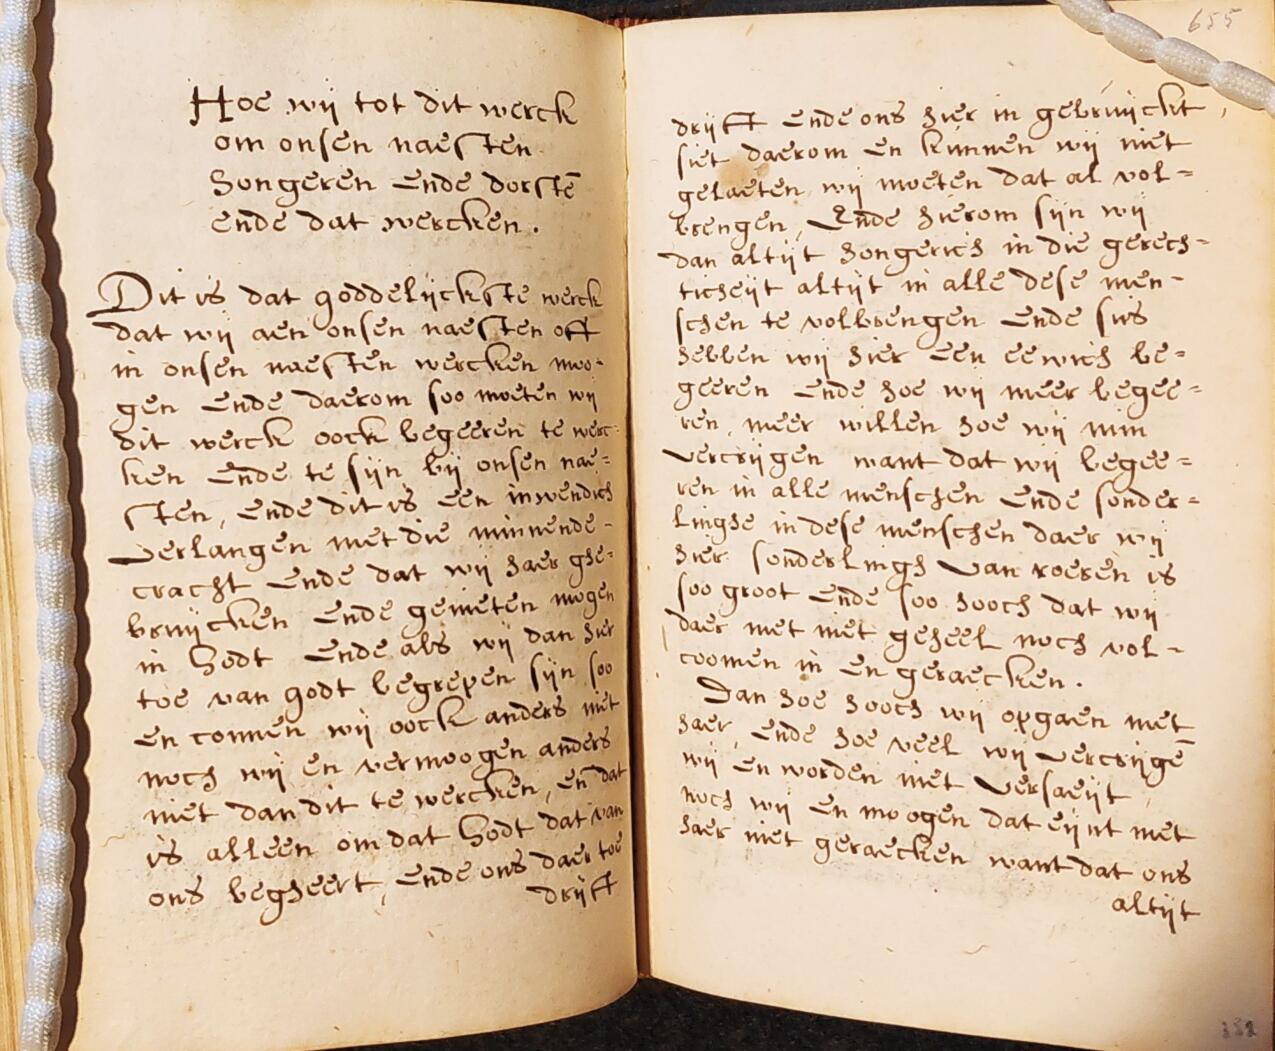 Hoe wij tot dit werck
om onsen naesten
hongeren ende dorstē
ende dat wercken.
Dit is dat goddelijckste werck
dat wij aen onsen naesten off
in onsen naesten wercken moo-
gen ende daerom soo moeten wij
dit werck oock begeeren te werc-
ken ende te sijn bij onsen nae-
sten, ende dit is een inwendich
verlangen met die minnende-
cracht ende dat wij haer ghe-
bruijcken ende genieten mogen
in Godt ende als wij dan hier
toe van godt begrepen sijn soo
en connen wij oock anders niet
noch wij en vermoogen anders
niet dan dit te wercken, en dat
is alleen om dat Godt dat van
ons begheert, ende ons daer toe
drijft
655
drijft ende ons hier in gebruijckt,
siet daerom en kunnen wij niet
gelaeten wij moeten dat al vol=
brengen, Ende hierom sijn wij
dan altijt hongerich in die gerech=
ticheijt altijt in alle dese men-
schen te volbrengen ende sus
hebben wij hier een eewich be=
geeren ende hoe wij meer begee=
ren, meer willen hoe wij min
vercrijgen want dat wij begee=
ren in alle menschen ende sonder=
linghe in dese menschen daer wij
hier sonderlingh van roeren is
soo groot ende soo hooch dat wij
daer met niet geheel noch vol-
coomen in en geraecken.
Dan hoe hooch wij opgaen met
haer, ende hoe veel wij vercrijgē
wij en worden niet versaeijt,
noch wij en moogen dat eijnt met
haer niet geraecken want dat ons
altijt